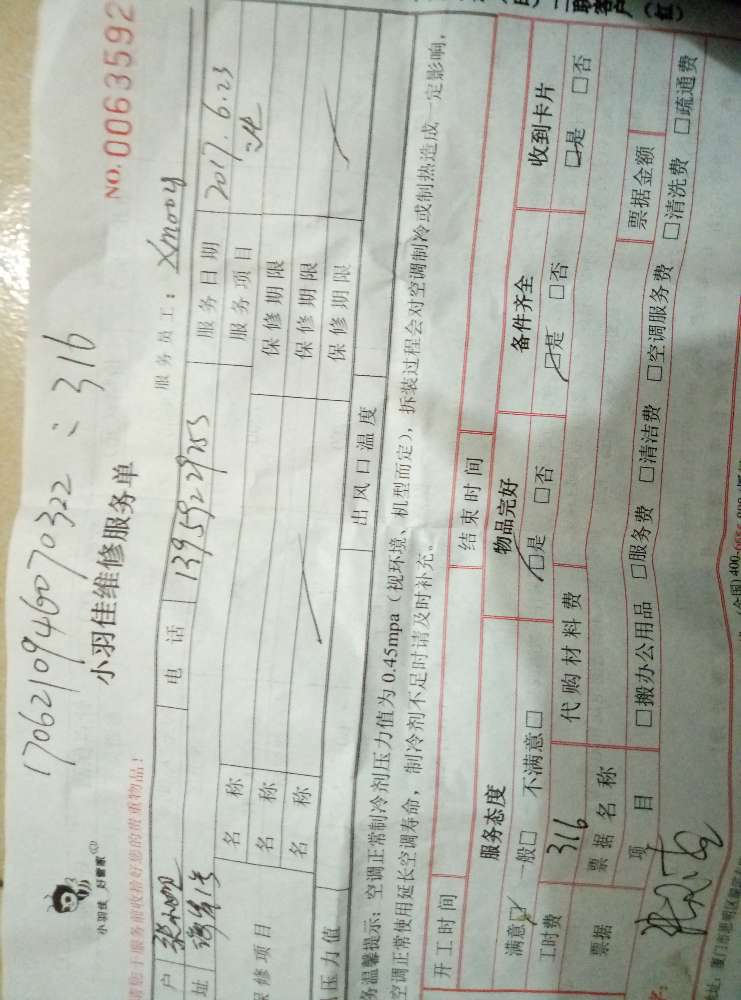 1706210946070322：316
小羽佳 好管家
小羽佳维修服务单
NO.0063592
服务前收拾好您的贵重物品！
服务员工：Xm004
户
电 话 13959229253
服务日期 2017.6.23
址
服务项目
修项目 名 称
保修期限
名 称
保修期限
名 称
保修期限
压力值
出风口温度
务温馨提示：空调正常制冷剂压力值为 0.45mpa（视环境、机型而定），拆装过程会对空调制冷或制热造成一定影响，
空调正常使用延长空调寿命，制冷剂不足时请及时补充。
开工时间
结束时间
服务态度 物品完好 备件齐全 收到卡片
满意☑ 一般□ 不满意□ ☑是 □否 ☑是 □否 ☑是 □否
工时费 316 代购材料费
票据 票据名称 票据金额
项 目 □搬办公用品 □服务费 □清洁费 □空调服务费 □清洗费 □疏通费
址：厦门市思明区